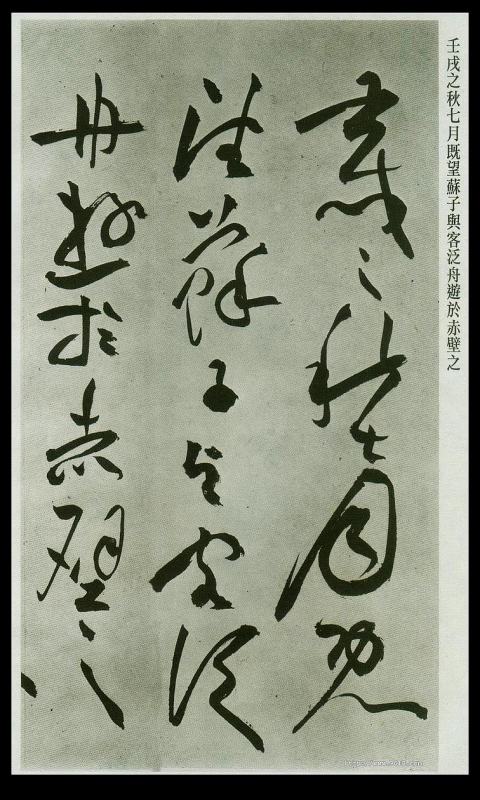 壬戌之秋七月既望蘇子與客泛舟遊於赤壁之
壬戌之秋七月既
望蘇子與客泛
舟遊於赤壁之